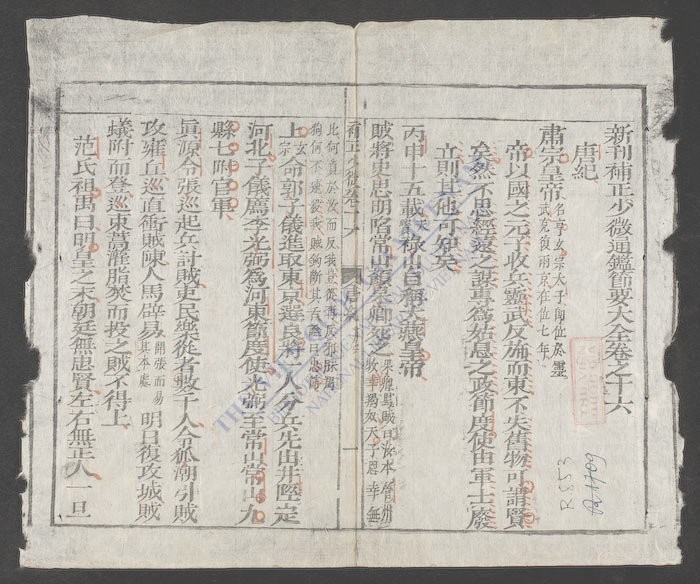 新刊補正少微通鑑節要大全卷之十六
唐紀
肅宗皇帝 名亨玄宗太子即位於靈武克復兩京在位七年
帝以國之元子收兵靈武反旆而東不失舊物可謂賢
矣然不思經遠之謀專為姑息之政節度使由軍士廢
立則其他可知矣
丙申十五載 祿山自稱大燕皇帝
賊將史思明陷常山顏杲卿死之 杲卿罵賊曰汝本營州牧羊羯奴天子恩幸無
比何負於汝而反我世唐臣
狗何不速殺我賊鉤斷其舌
補正少微卷十六
上命郭子儀進取東京選良將一人分兵先出井陘定
河北子儀薦李光弼為河東節度使光弼至常山常山九
縣七附官軍
真源令張巡起兵討賊吏民樂從者數千人令狐潮引賊
攻雍丘巡直衝賊陳人馬辟易 開張而易其本處 明日復攻城賊
蟻附而登巡束蒿灌脂焚而投之賊不得上
范氏祖禹曰明皇之末朝廷無忠賢左右無正人一旦
R.353